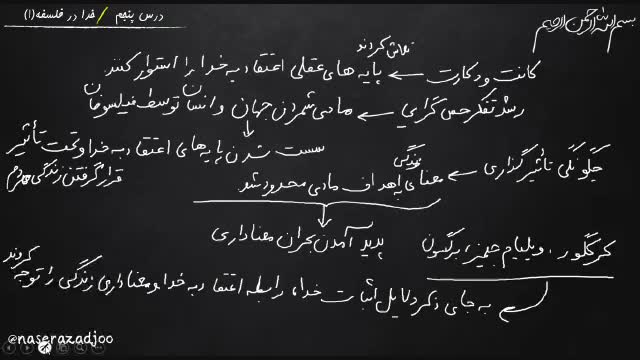 بسم الله الرحمن الرحیم
درس پنجم / خدا در فلسفه (۱)
کانت و دکارت ← تلاش کردند پایه های عقلی اعتقاد به خدا را استوار کنند
رشد تفکر حس گرایی ← مادی شمردن جهان و انسان توسط فیلسوفان
↓
سست شدن پایه های اعتقاد به خدا و تحت تأثیر
قرار گرفتن زندگی مردم
چگونگی تأثیرگذاری ← معنای زندگی به اهداف مادی محدود شد
↓
پدید آمدن بحران معناداری
کرکگور، ویلیام جیمز، برگسون
به جای ذکر دلایل اثبات خدا، رابطه اعتقاد به خدا و معناداری زندگی را توجه کردند
@naserazadjoo